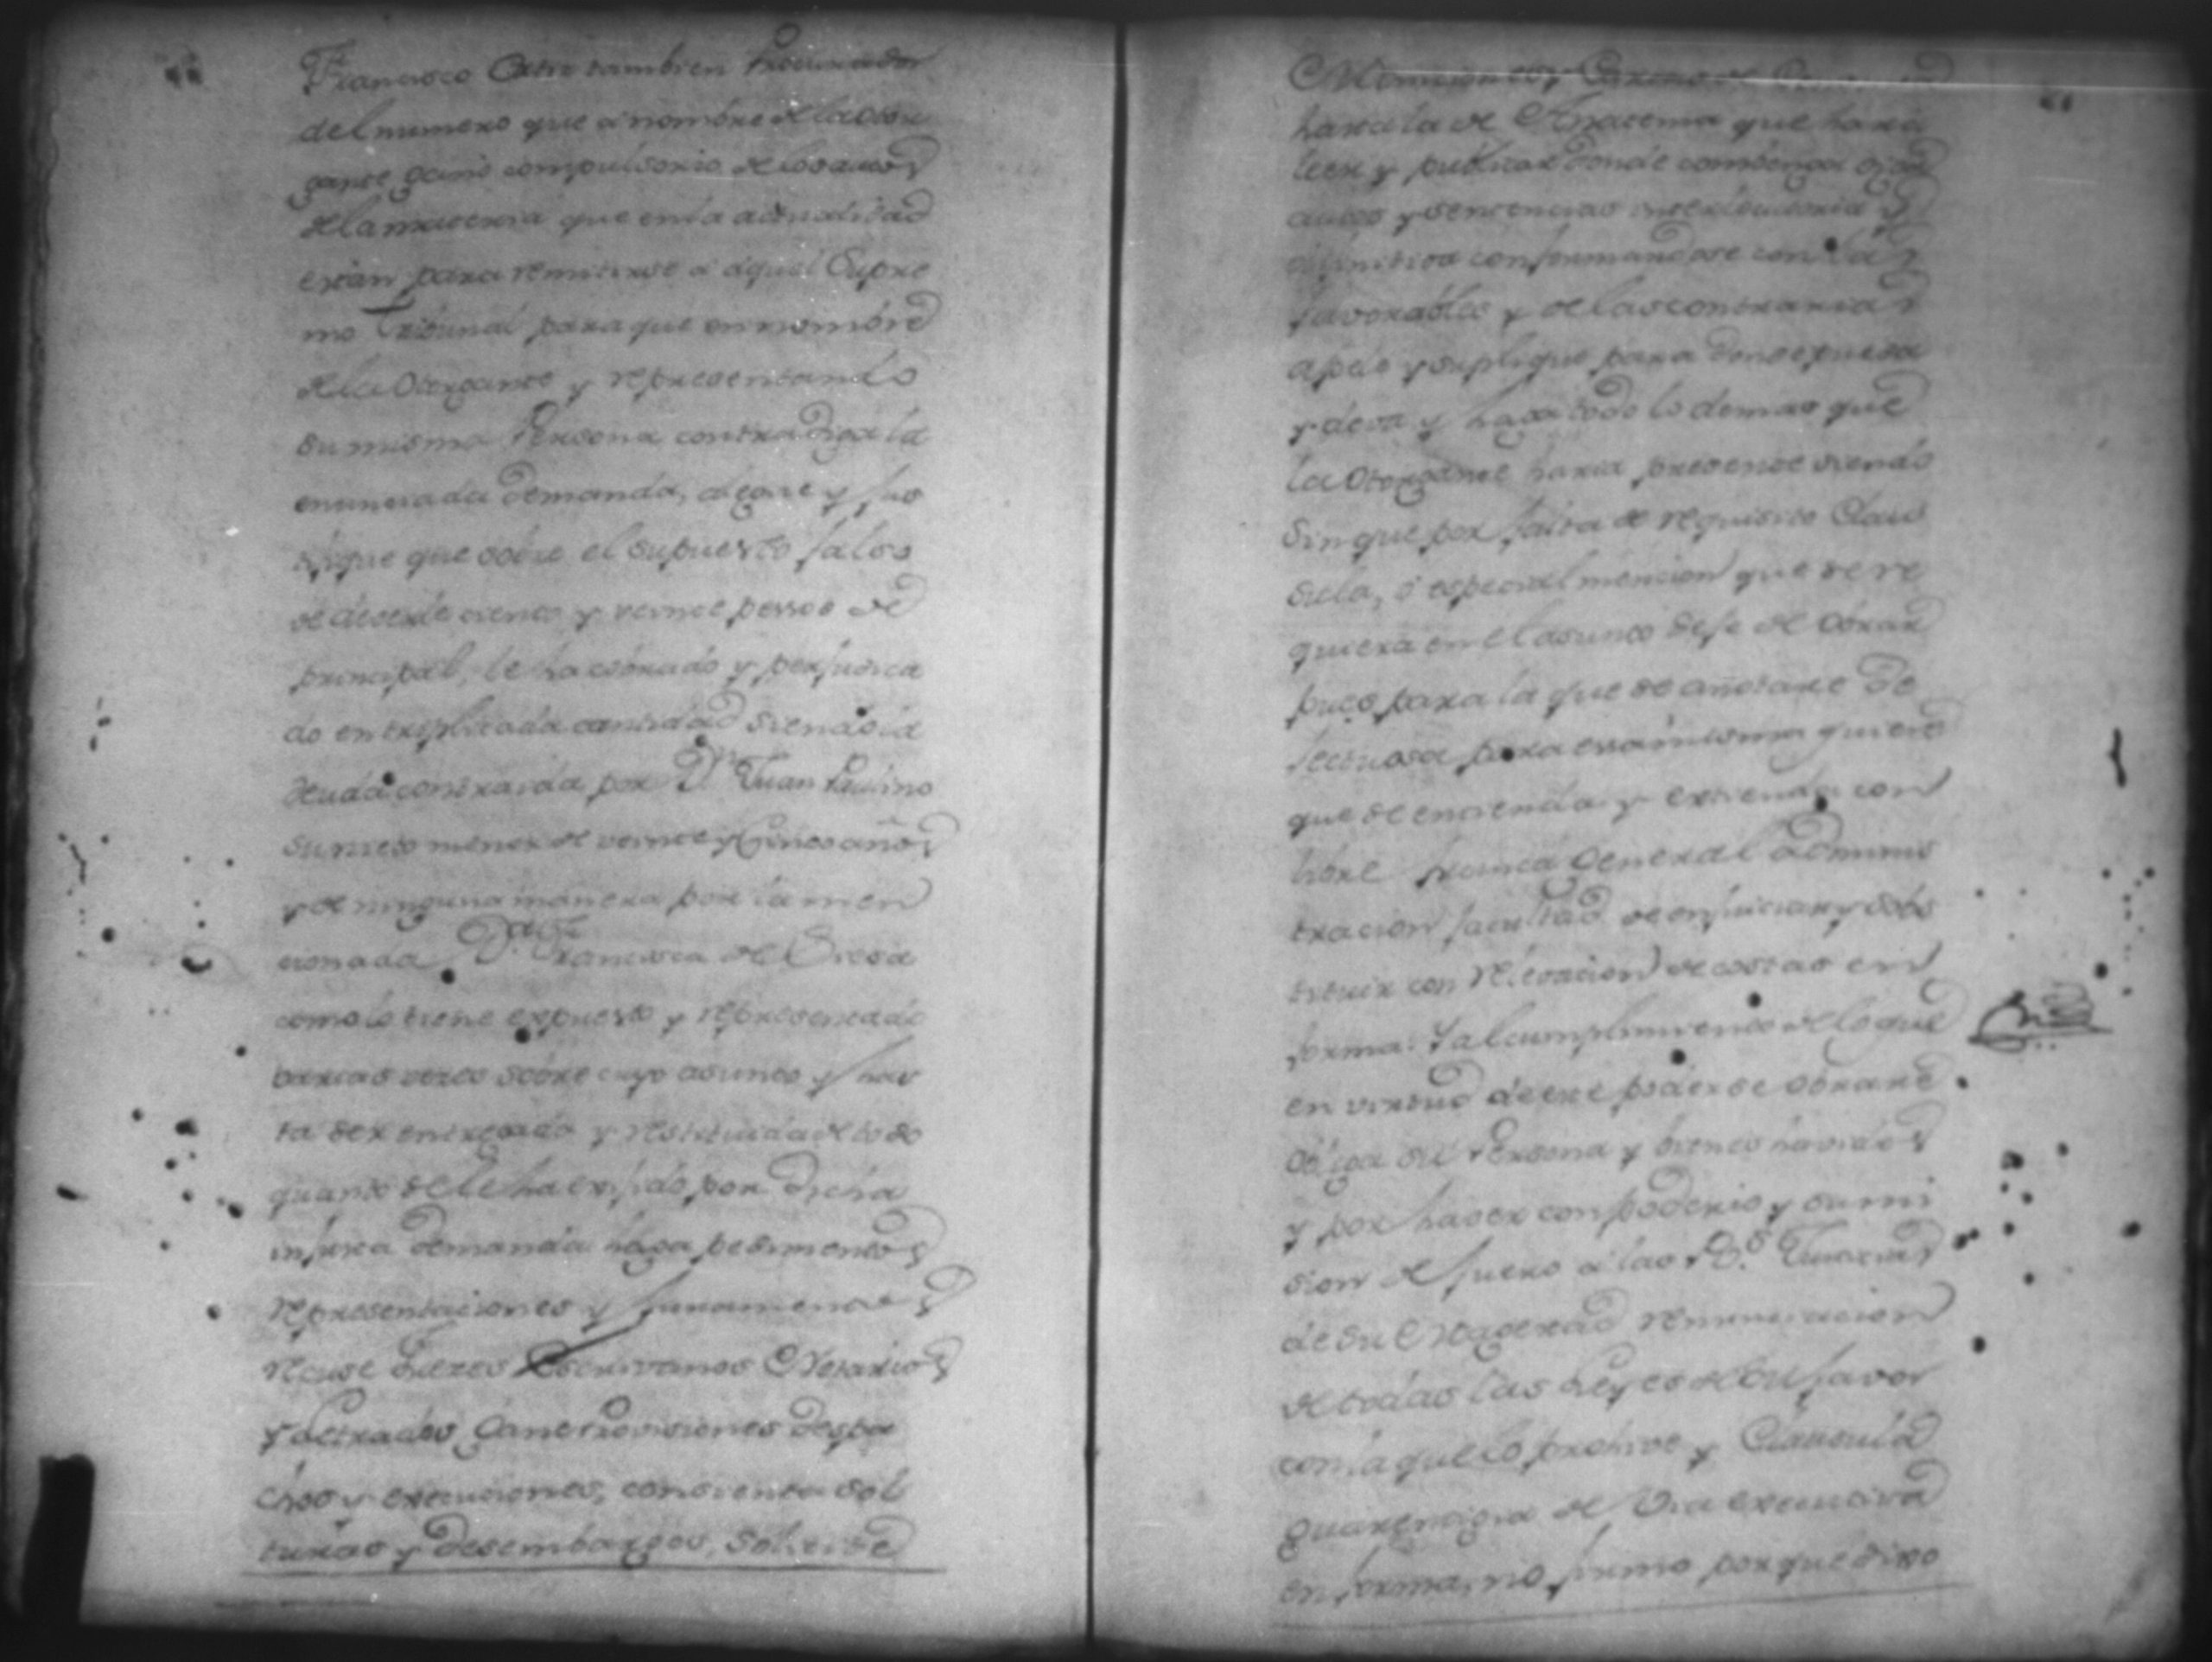 Francisco también Procurador
del numero que a nombre de la otor
gante gano compulsorio de los autos
de la materia que en la actualidad
estan para remitirse a aquel Supre
mo Tribunal para que en nombre
de la Otorgante y representando
su misma Persona contradiga la
enunciada demanda, alegue y jus
tifique que sobre el supuesto falso
de deverle ciento y veinte pessos de
principal, le ha cobrado y perjudica
do en triplicada cantidad siendo la
deuda contraida por Dn Juan Paulino
su nieto menor de veinte y Cinco años
y de ninguna manera por la men
cionada Da. Francisca de
como lo tiene expuesto y representado
barias vezes sobre cuyo asunto y has
ta ser entregada y restituida de todo
quanto se le ha exijido por dicha
injusta demanda haga pedimentos
representaciones y juramentos
recuse Juezes Escrivanos Notarios
y Letrados Gane Provisiones despa
chos y execuciones, consienta sol
turas y desembargos, solicite
hasta la de Anatema que hara
leer y publicar donde combenga oiga
autos y sentencias interlocutorias y
difinitivas conformandose con las
favorables y de las contrarias
apele y suplique para donde pueda
y deva y haga todo lo demas que
la Otorgante haria presente siendo
sin que por falta de requisito Clau
sula, o especial mencion que se re
quiera en el asunto deje de obrar
pues para la que se anotare de
fectuosa para essa misma quiere
que se entienda y extienda con
libre franca General adminis
tracion facultad de enjuiciar y sobs
tituir con relevacion de costas en
forma. Y al cumplimiento de lo que
en virtud de este poder se obrare
obliga su Persona y bienes havidos
y por haver con poderio y sumi
sion de fuero a las Justicias
de Su Magestad renunciacion
de todas las Leyes de su favor
con la que lo prohive y Clausula
guarentigia de Via executiva
en forma, no firmo porque dixo